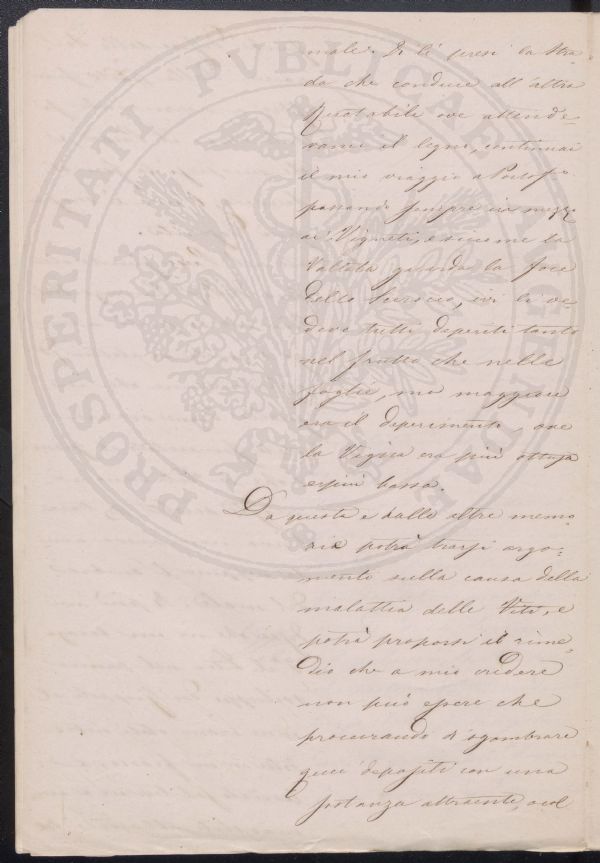 male. Di lì presi la stra
da che conduce all'altra
Rotabile ove attende-
vami il legno, continuai
il mio viaggio a Portof.º
passando sempre in mezzo
ai Vigneti, e siccome la
Vallata guarda la foce
dello Scirocco, ivi li ve-
deva tutti deperiti tanto
nel frutto che nelle
foglie, ma maggiore
era il deperimento, ove
la Vigna era più
e più bassa.
Da questa e dalle altre memo
rie potrà trarsi argo-
mento sulla causa della
malattia delle Viti, e
potrà proporsi il rime-
dio che a mio credere
non può essere che
procurando di sgombrare
quei depositi con una
potenza attraente, ed
PROSPERITATI PUBLICAE AUGENDAE